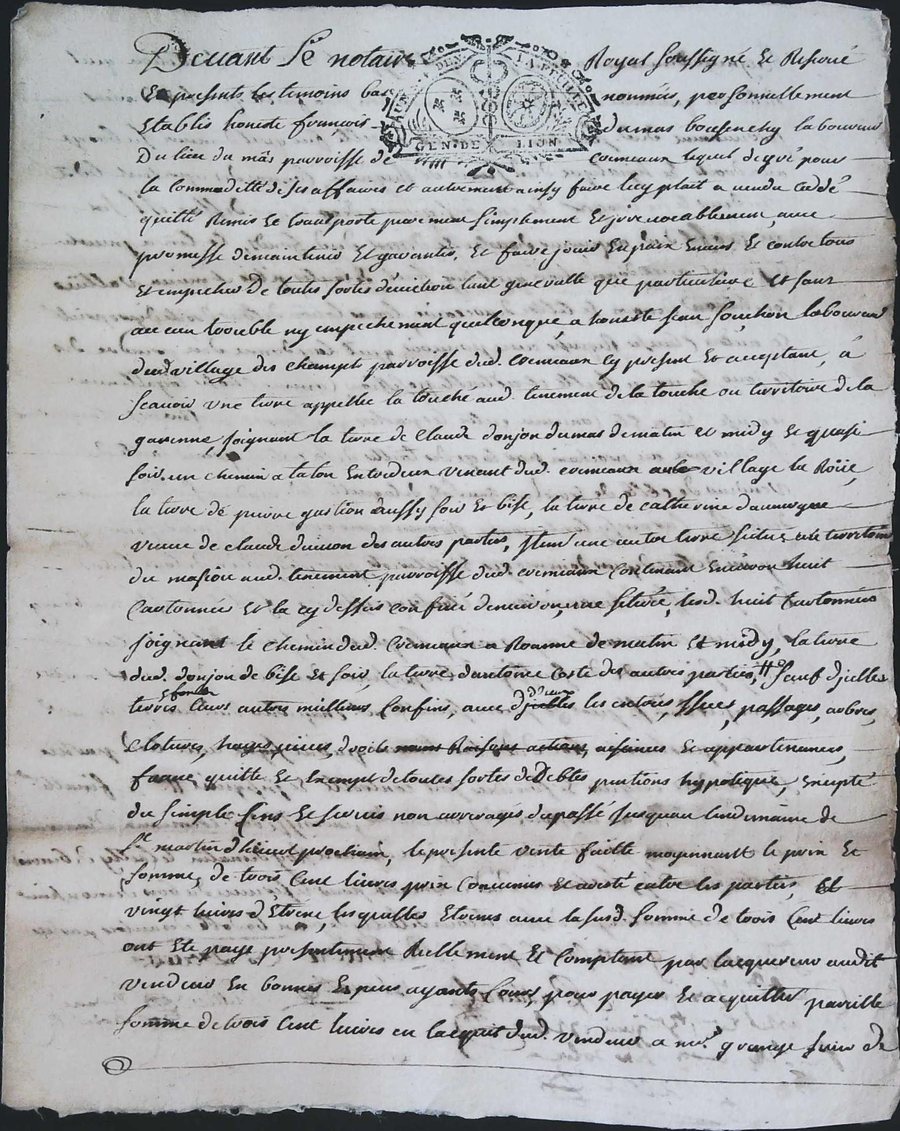 Devant Le notaire Royal Soussigné et Reservé
Et presents les temoins bas nommés, personnellement
Etablis honeste françois dumas boussenchy laboureur
Du lieu du mas parroisse de cremeaux lequel de gré pour
la Commodité de ses affaires et autrement ainsy faire luy plait a vendu cedé
quitté Remis et transporté purement simplement et irrevocablement, avec
promesse de maintenir et garantir, et faire jouir en paix Envers et contre tous
Et empecher De toutes sortes d'eviction tant generalle que particuliere et sans
aucun trouble ny empechement quelconque, a honeste jean souchon laboureur
dud. village des champts parroisse dud. cremeaux icy present et acceptant, a
scavoir une terre appellée la touche aud. tenement de la touche ou territoire de la
garenne, joignant la terre de Claude donjon dumas de matin et midy et quasi
soir un chemin a talon Entredeux venant dud. cremeaux au village la Roüe
la terre de pierre gastion aussy soir et bise, la terre de catherine dauvergne
veuve de claude des autres parties, Item une autre terre située au territoire
du masiou aud. tenement parroisse dud. cremeaux contenant environ huit
Cartonnées et la cy dessus confinée demy , lesd. huit Cartonnées
joignant le chemin dud. Cremeaux a Roanne de matin et midy, la terre
dud. donjon de bise et soir, la terre d'antoine coste des autres parties, sauf d'jcelles
terres Leurs autres meilleurs Confins, avec d'jcelles les entrées, issues, passages, arbres,
Clotures, hayes vives, droits noms Raisons actions, aisances et appartenances,
franc quitte et Exempt de toutes sortes de Debtes pentions hypoteque, Excepté
du simple Cens et servis non arreragés du passé jusqu'au lendemaine de
St martin d'hiver prochain, le presente vente faitte moyennant le prix et
somme de trois Cent livres prix convenus et aresté entre les parties, Et
vingt livres d'Etrene, lesquelles Etrenes avec la susd. somme de trois Cent livres
ont Eté payé presentement Reellement et Comptant par lacquereur audit
vendeur En bonnes Especes ayants Cours, pour payer et acquitter pareille
somme de trois Cent livres en lacquit dud. vendeur a mr. grange de
GEN. DE LION